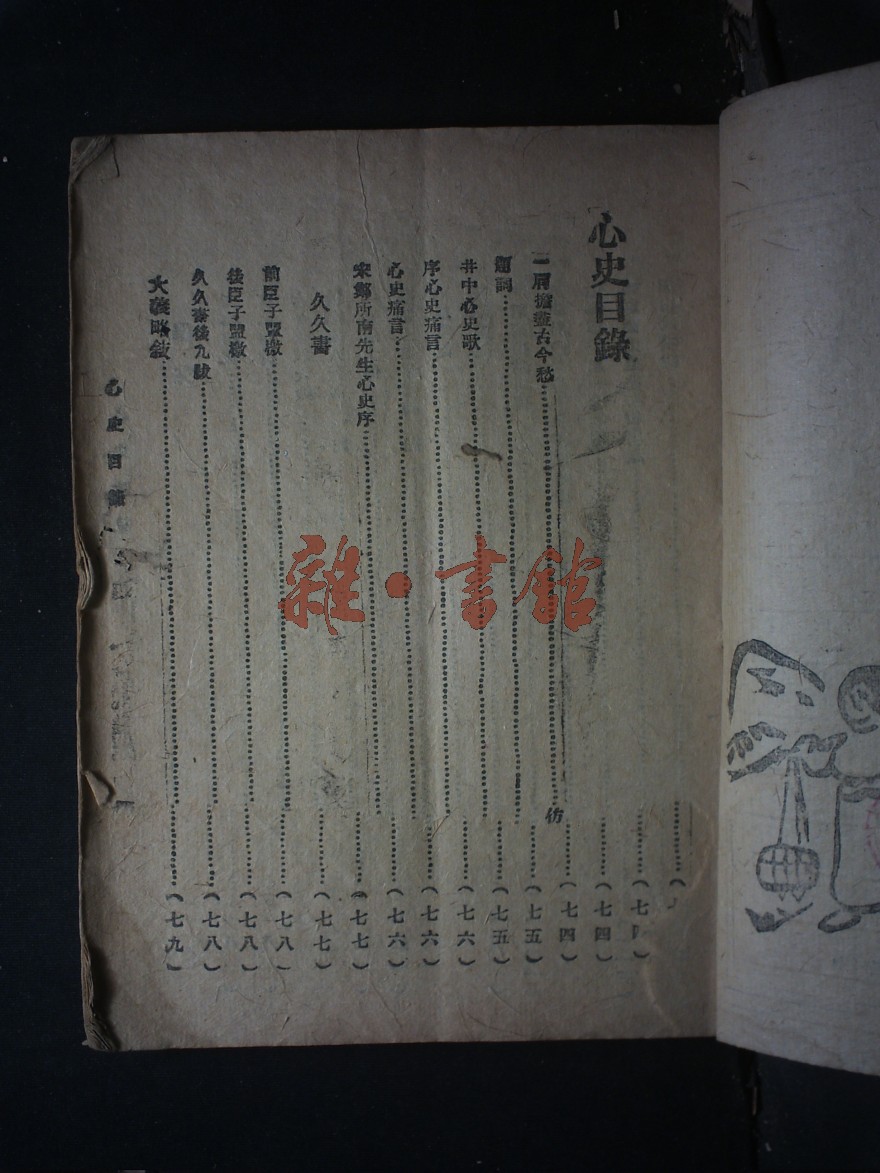 心史目錄
(七四)
(七四)
一肩擔盡古今愁……(七五)
仿
題詞……(七五)
井中心史歌……(七六)
序心史痛言……(七六)
心史痛言……(七六)
宋鄭所南先生心史序……(七七)
久久書……(七七)
前臣子盟檄……(七八)
後臣子盟檄……(七八)
久久書後九跋……(七八)
大義略敍……(七九)
心史目錄
雜·書館